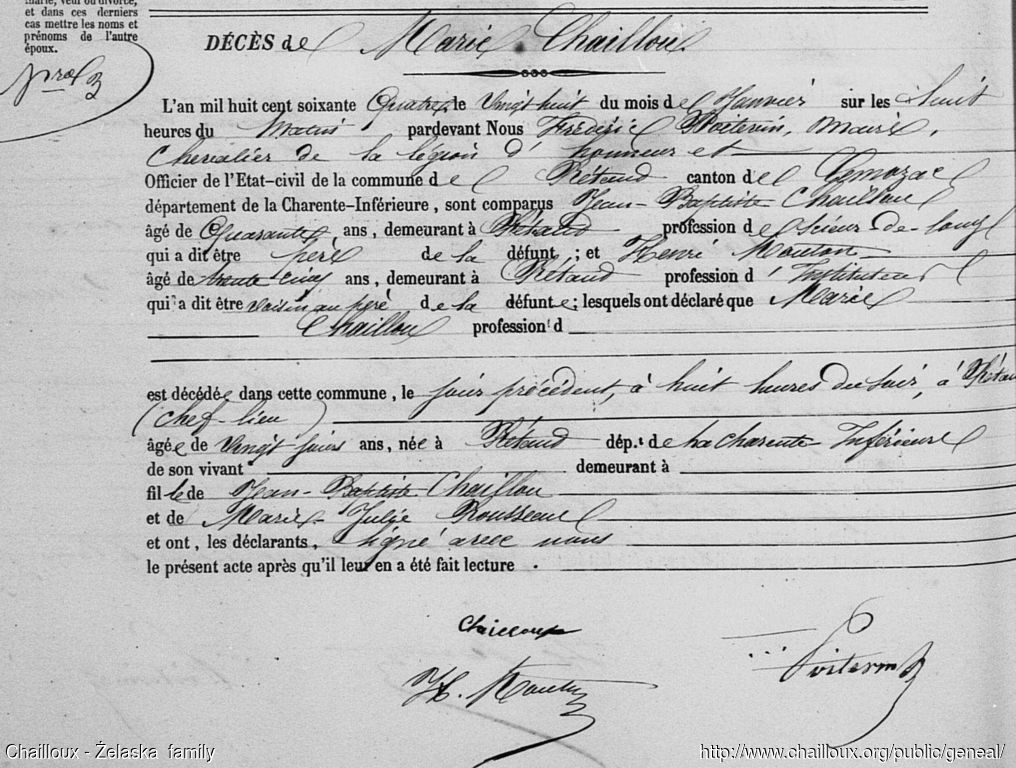 marié, veuf ou divorcé,
et dans ces derniers
cas mettre les noms et
prénoms de l'autre
époux.
DÉCÈS de Marie Chaillou
L'an mil huit cent soixante Quatre, le Vingt huit du mois de Janvier sur les huit
heures du Matin pardevant Nous Frédéric Poitevin, Maire,
Chevalier de la légion d'honneur et
Officier de l'Etat-civil de la commune de Rétaud canton de Gemozac
département de la Charente-Inférieure, sont comparus Jean-Baptiste Chaillou
âgé de Quarante ans, demeurant à Rétaud profession de Scieur de long
qui a dit être père de la défunt ; et Henri Mouton
âgé de trente cinq ans, demeurant à Rétaud profession d'Instituteur
qui a dit être voisin au père de la défunte ; lesquels ont déclaré que Marie
Chaillou profession d
est décédée dans cette commune, le jour précédent, à huit heures du soir, à Rétaud
(chef-lieu)
âgée de Vingt jours ans, née à Rétaud dép.t de La Charente-Inférieure
de son vivant demeurant à
fille de Jean-Baptiste Chaillou
et de Marie Julie Rousseau
et ont, les déclarants, signé avec nous
le présent acte après qu'il leur en a été fait lecture.
Chailloux
H. Mouton
Poitevin
Chailloux - Želaska family
http://www.chailloux.org/public/geneal/